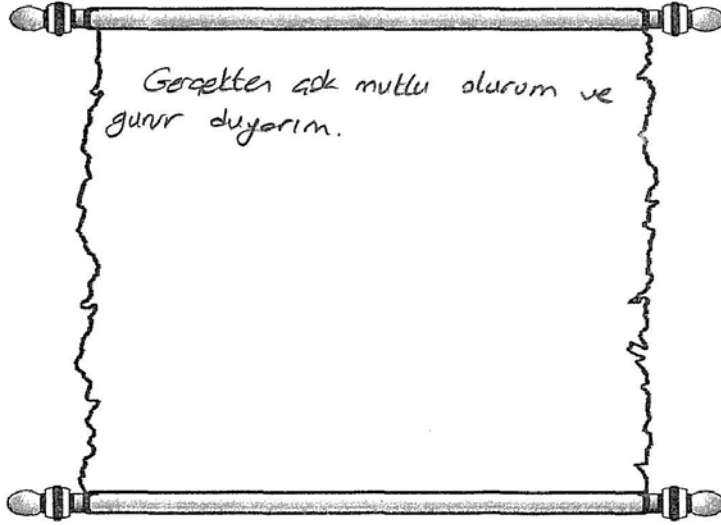 Gerçekten çok mutlu olurum ve
gurur duyarım.